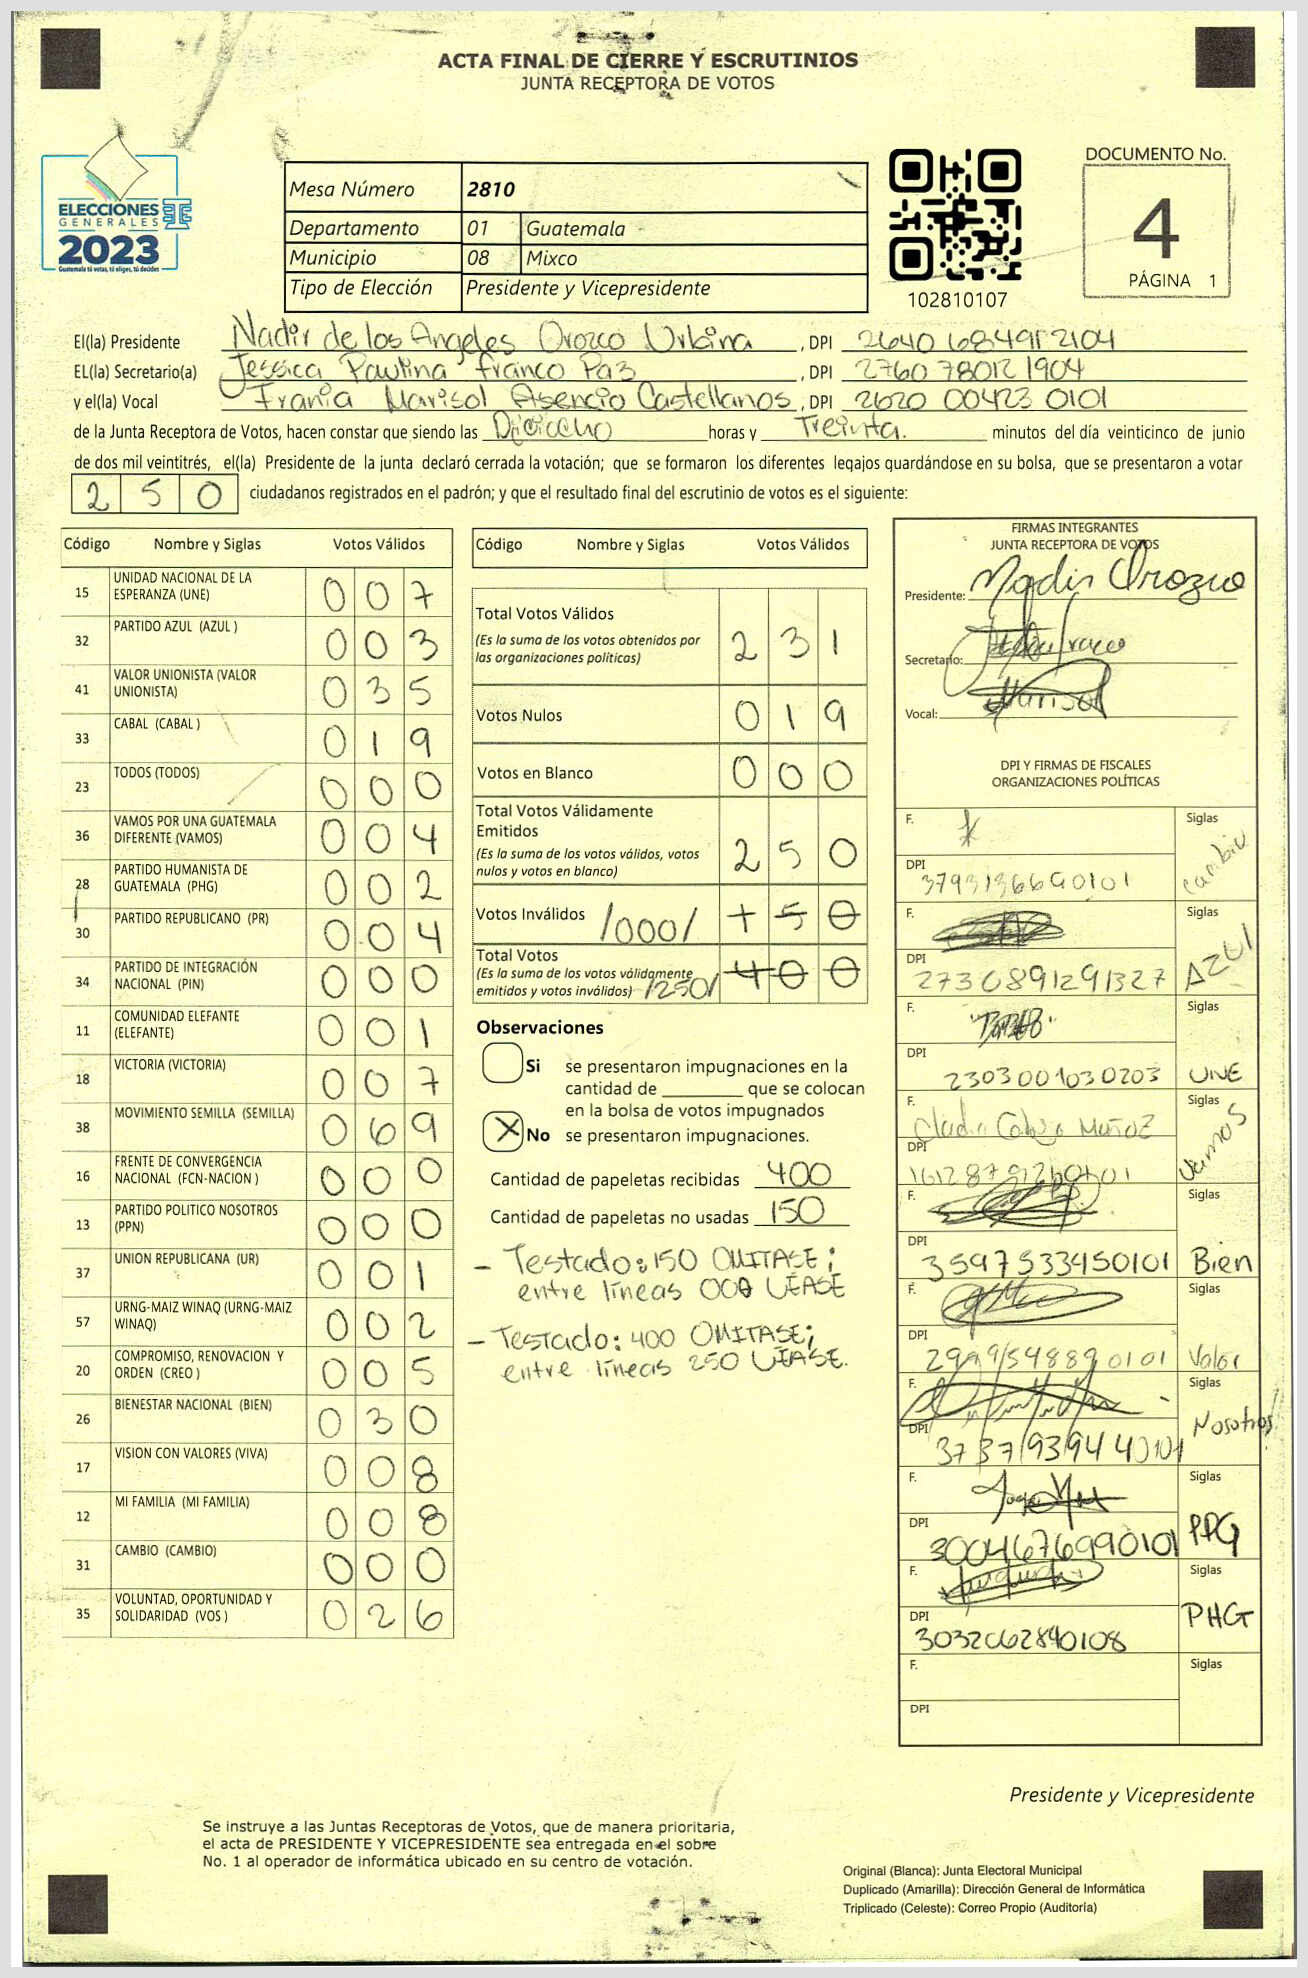 ACTA FINAL DE CIERRE Y ESCRUTINIOS
JUNTA RECEPTORA DE VOTOS
ELECCIONES
GENERALES
2023
Guatemala tú votas, tú eliges, tú decides
Mesa Número 2810
Departamento 01 Guatemala
Municipio 08 Mixco
Tipo de Elección Presidente y Vicepresidente
102810107
DOCUMENTO No.
4
PÁGINA 1
El(la) Presidente Nadir de los Angeles Orozco Urbina, DPI
EL(la) Secretario(a) Jessica Paulina Franco Paz, DPI 2760 78012 1904
y el(la) Vocal Frania Marisol Asencio Castellanos, DPI 2620 00423 0101
de la Junta Receptora de Votos, hacen constar que siendo las horas y Treinta. minutos del día veinticinco de junio
de dos mil veintitrés, el(la) Presidente de la junta declaró cerrada la votación; que se formaron los diferentes legajos guardándose en su bolsa, que se presentaron a votar
250 ciudadanos registrados en el padrón; y que el resultado final del escrutinio de votos es el siguiente:
Código Nombre y Siglas Votos Válidos
15 UNIDAD NACIONAL DE LA ESPERANZA (UNE) 007
32 PARTIDO AZUL (AZUL ) 003
41 VALOR UNIONISTA (VALOR UNIONISTA) 035
33 CABAL (CABAL ) 019
23 TODOS (TODOS) 000
36 VAMOS POR UNA GUATEMALA DIFERENTE (VAMOS) 004
28 PARTIDO HUMANISTA DE GUATEMALA (PHG) 002
30 PARTIDO REPUBLICANO (PR) 004
34 PARTIDO DE INTEGRACIÓN NACIONAL (PIN) 000
11 COMUNIDAD ELEFANTE (ELEFANTE) 001
18 VICTORIA (VICTORIA) 007
38 MOVIMIENTO SEMILLA (SEMILLA) 069
16 FRENTE DE CONVERGENCIA NACIONAL (FCN-NACION ) 000
13 PARTIDO POLITICO NOSOTROS (PPN) 000
37 UNION REPUBLICANA (UR) 001
57 URNG-MAIZ WINAQ (URNG-MAIZ WINAQ) 002
20 COMPROMISO, RENOVACION Y ORDEN (CREO ) 005
26 BIENESTAR NACIONAL (BIEN) 030
17 VISION CON VALORES (VIVA) 008
12 MI FAMILIA (MI FAMILIA) 008
31 CAMBIO (CAMBIO) 000
35 VOLUNTAD, OPORTUNIDAD Y SOLIDARIDAD (VOS ) 026
Código Nombre y Siglas Votos Válidos
Total Votos Válidos 231
(Es la suma de los votos obtenidos por
las organizaciones políticas)
Votos Nulos 019
Votos en Blanco 000
Total Votos Válidamente
Emitidos 250
(Es la suma de los votos válidos, votos
nulos y votos en blanco)
Votos Inválidos /000/ 150
Total Votos 400
(Es la suma de los votos válidamente
emitidos y votos inválidos) /250/
Observaciones
Si se presentaron impugnaciones en la
cantidad de ________ que se colocan
en la bolsa de votos impugnados
X No se presentaron impugnaciones.
Cantidad de papeletas recibidas 400
Cantidad de papeletas no usadas 150
- Testado: 150 OMITASE;
entre líneas 000 LÉASE
- Testado: 400 OMITASE;
entre líneas 250 LÉASE.
FIRMAS INTEGRANTES
JUNTA RECEPTORA DE VOTOS
Presidente: Nadir Orozco
Secretario:
Vocal: Marisol
DPI Y FIRMAS DE FISCALES
ORGANIZACIONES POLÍTICAS
F. Siglas
DPI Cambio
F. Siglas
DPI 2730891291327 AZUL
F. Siglas
DPI 2303001030203 UNE
F. Siglas
DPI Vamos
F. Siglas
DPI 3597533450101 Bien
F. Siglas
DPI Valor
F. Siglas
DPI Nosotros
F. Siglas
DPI 3004676990101 PPG
F. Siglas
DPI 3032062840108 PHG
F. Siglas
DPI
Presidente y Vicepresidente
Se instruye a las Juntas Receptoras de Votos, que de manera prioritaria,
el acta de PRESIDENTE Y VICEPRESIDENTE sea entregada en el sobre
No. 1 al operador de informática ubicado en su centro de votación.
Original (Blanca): Junta Electoral Municipal
Duplicado (Amarilla): Dirección General de Informática
Triplicado (Celeste): Correo Propio (Auditoría)